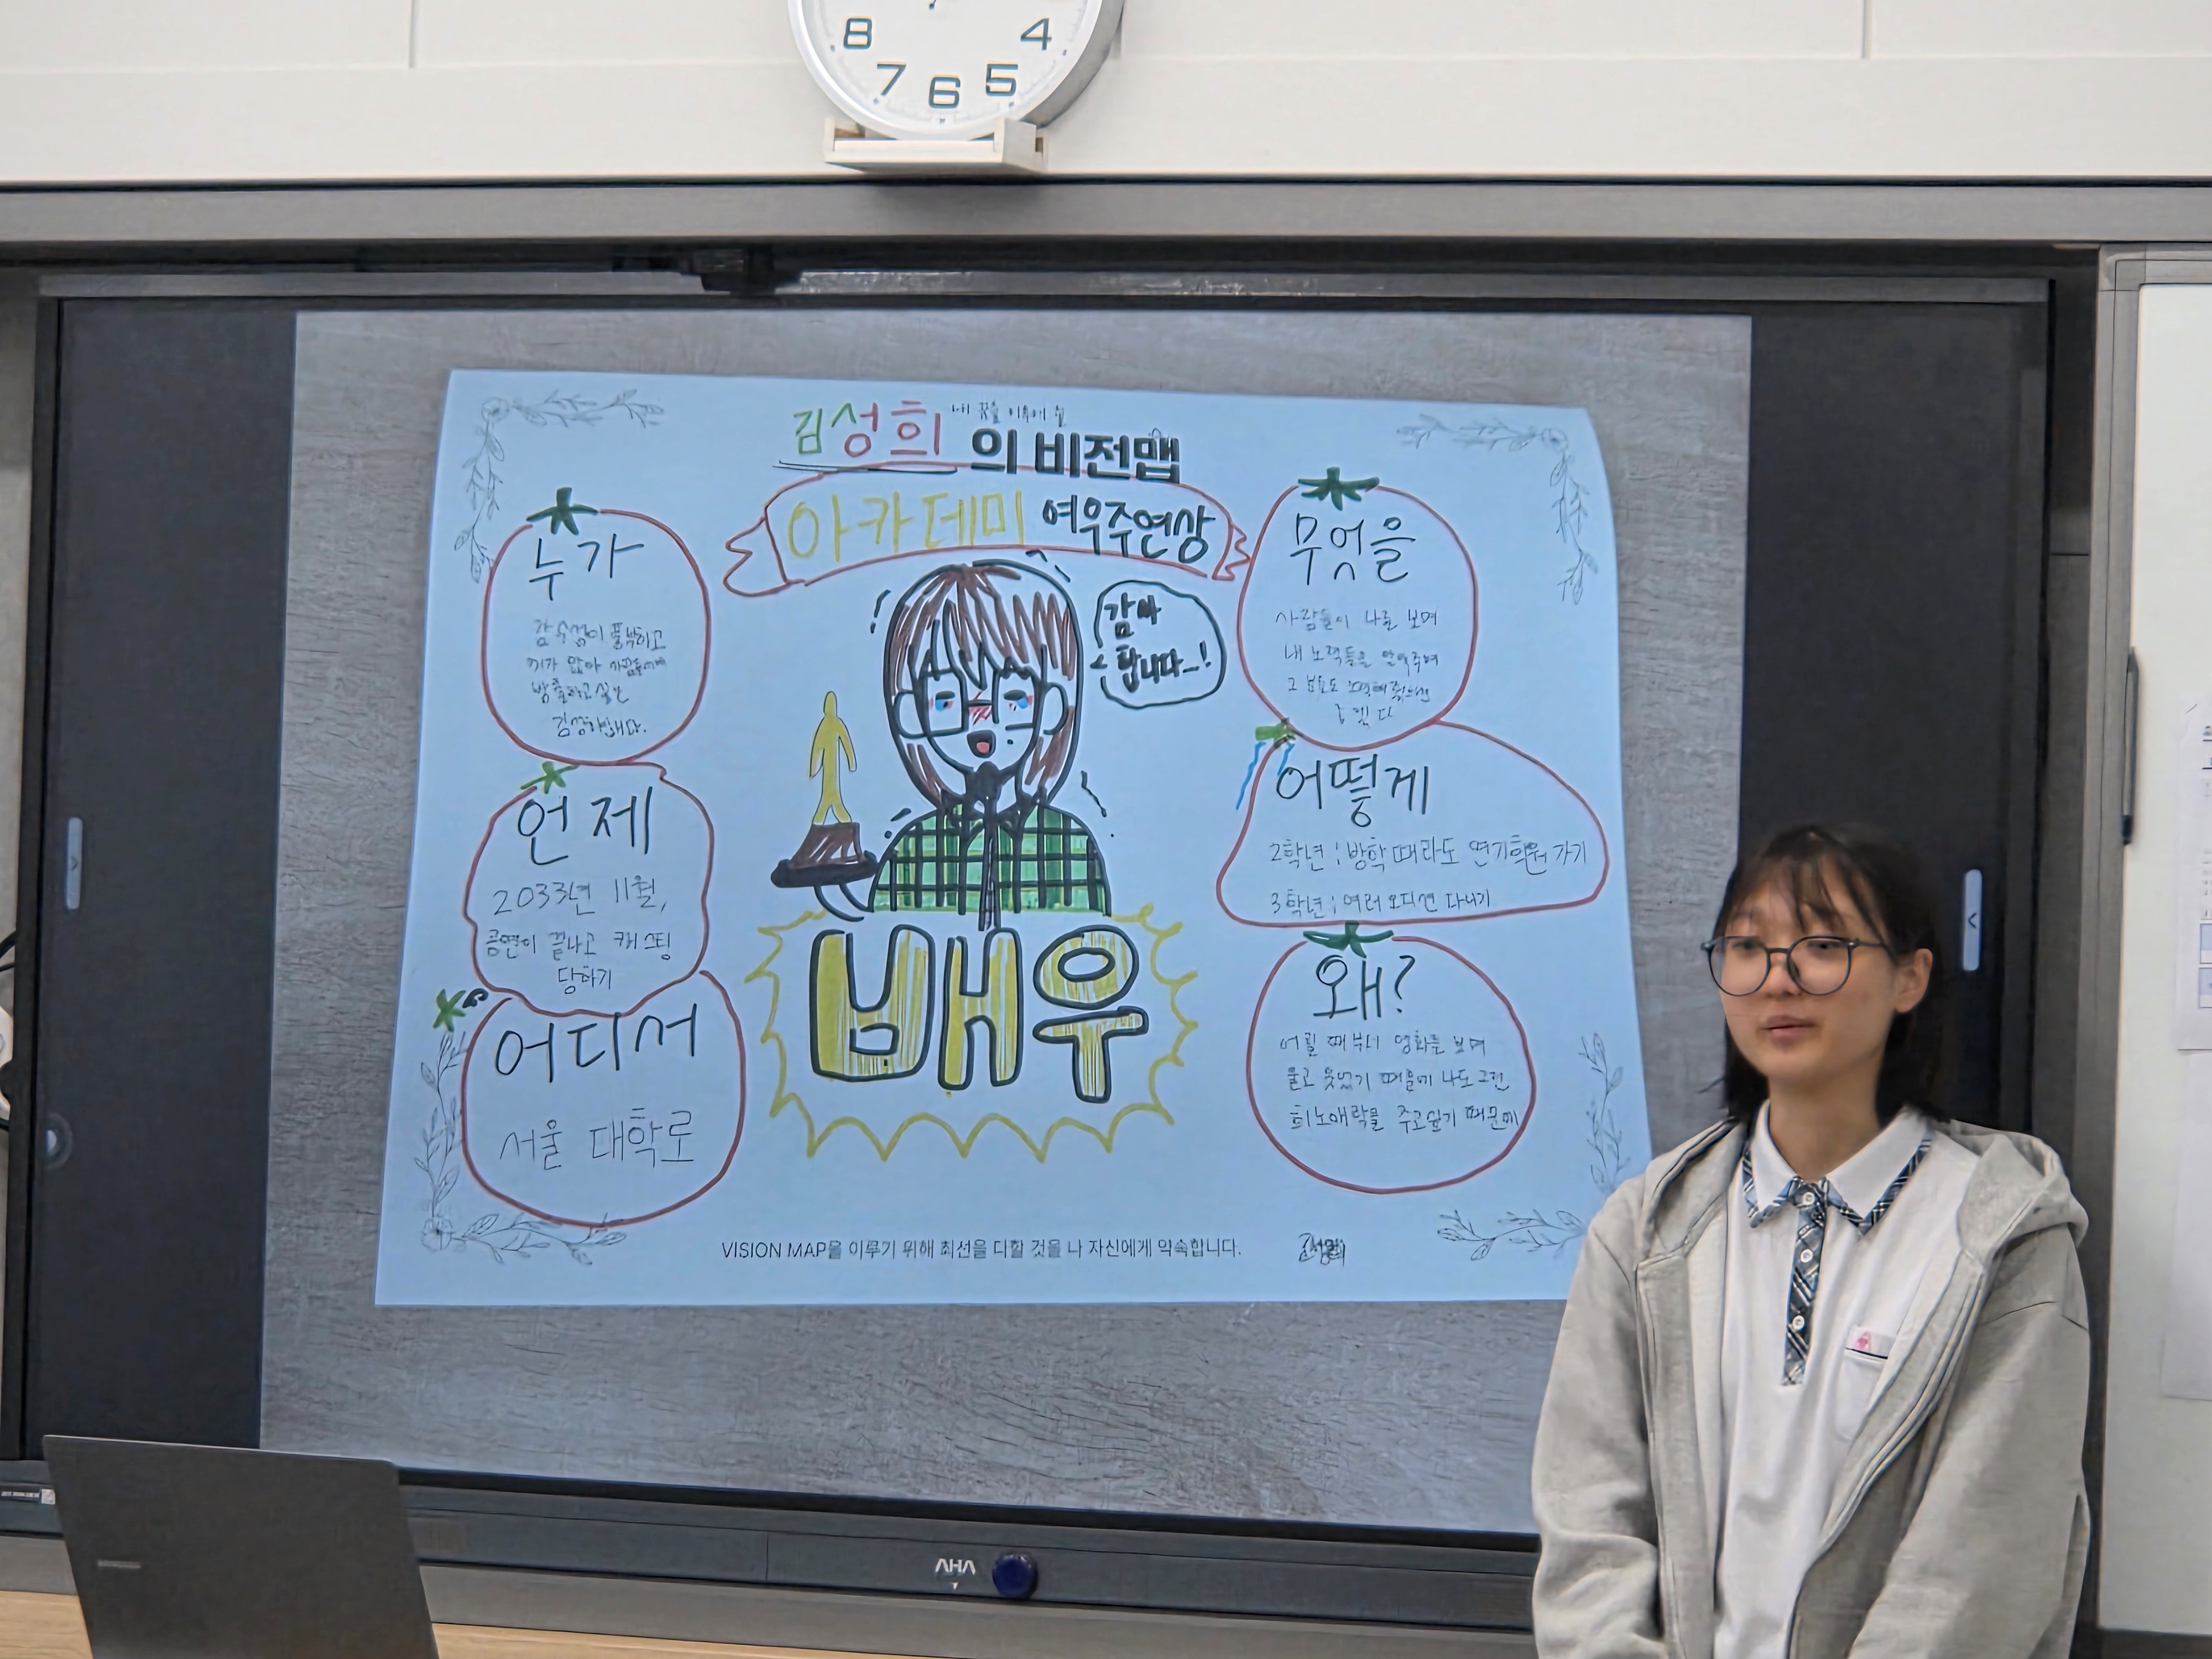 8 7 6 5 4
김성희 내 꿈을 이루어 줄
의 비전맵
아카데미 여우주연상
누가
감수성이 풍부하고
끼가 많아
방출하고 싶은
언제
2033년 11월,
공연이 끝나고 캐스팅
당하기
어디서
서울 대학로
감사
합니다_!
배우
무엇을
사람들이 나를 보며
내 노력들을 알아주며
어떻게
2학년 : 방학 때라도 연기학원 가기
3학년 : 여러 오디션 다니기
왜?
어릴 때부터 영화를 보며
울고 웃었기 때문에 나도 그런
희노애락을 주고싶기 때문에
VISION MAP을 이루기 위해 최선을 다할 것을 나 자신에게 약속합니다.
AHA